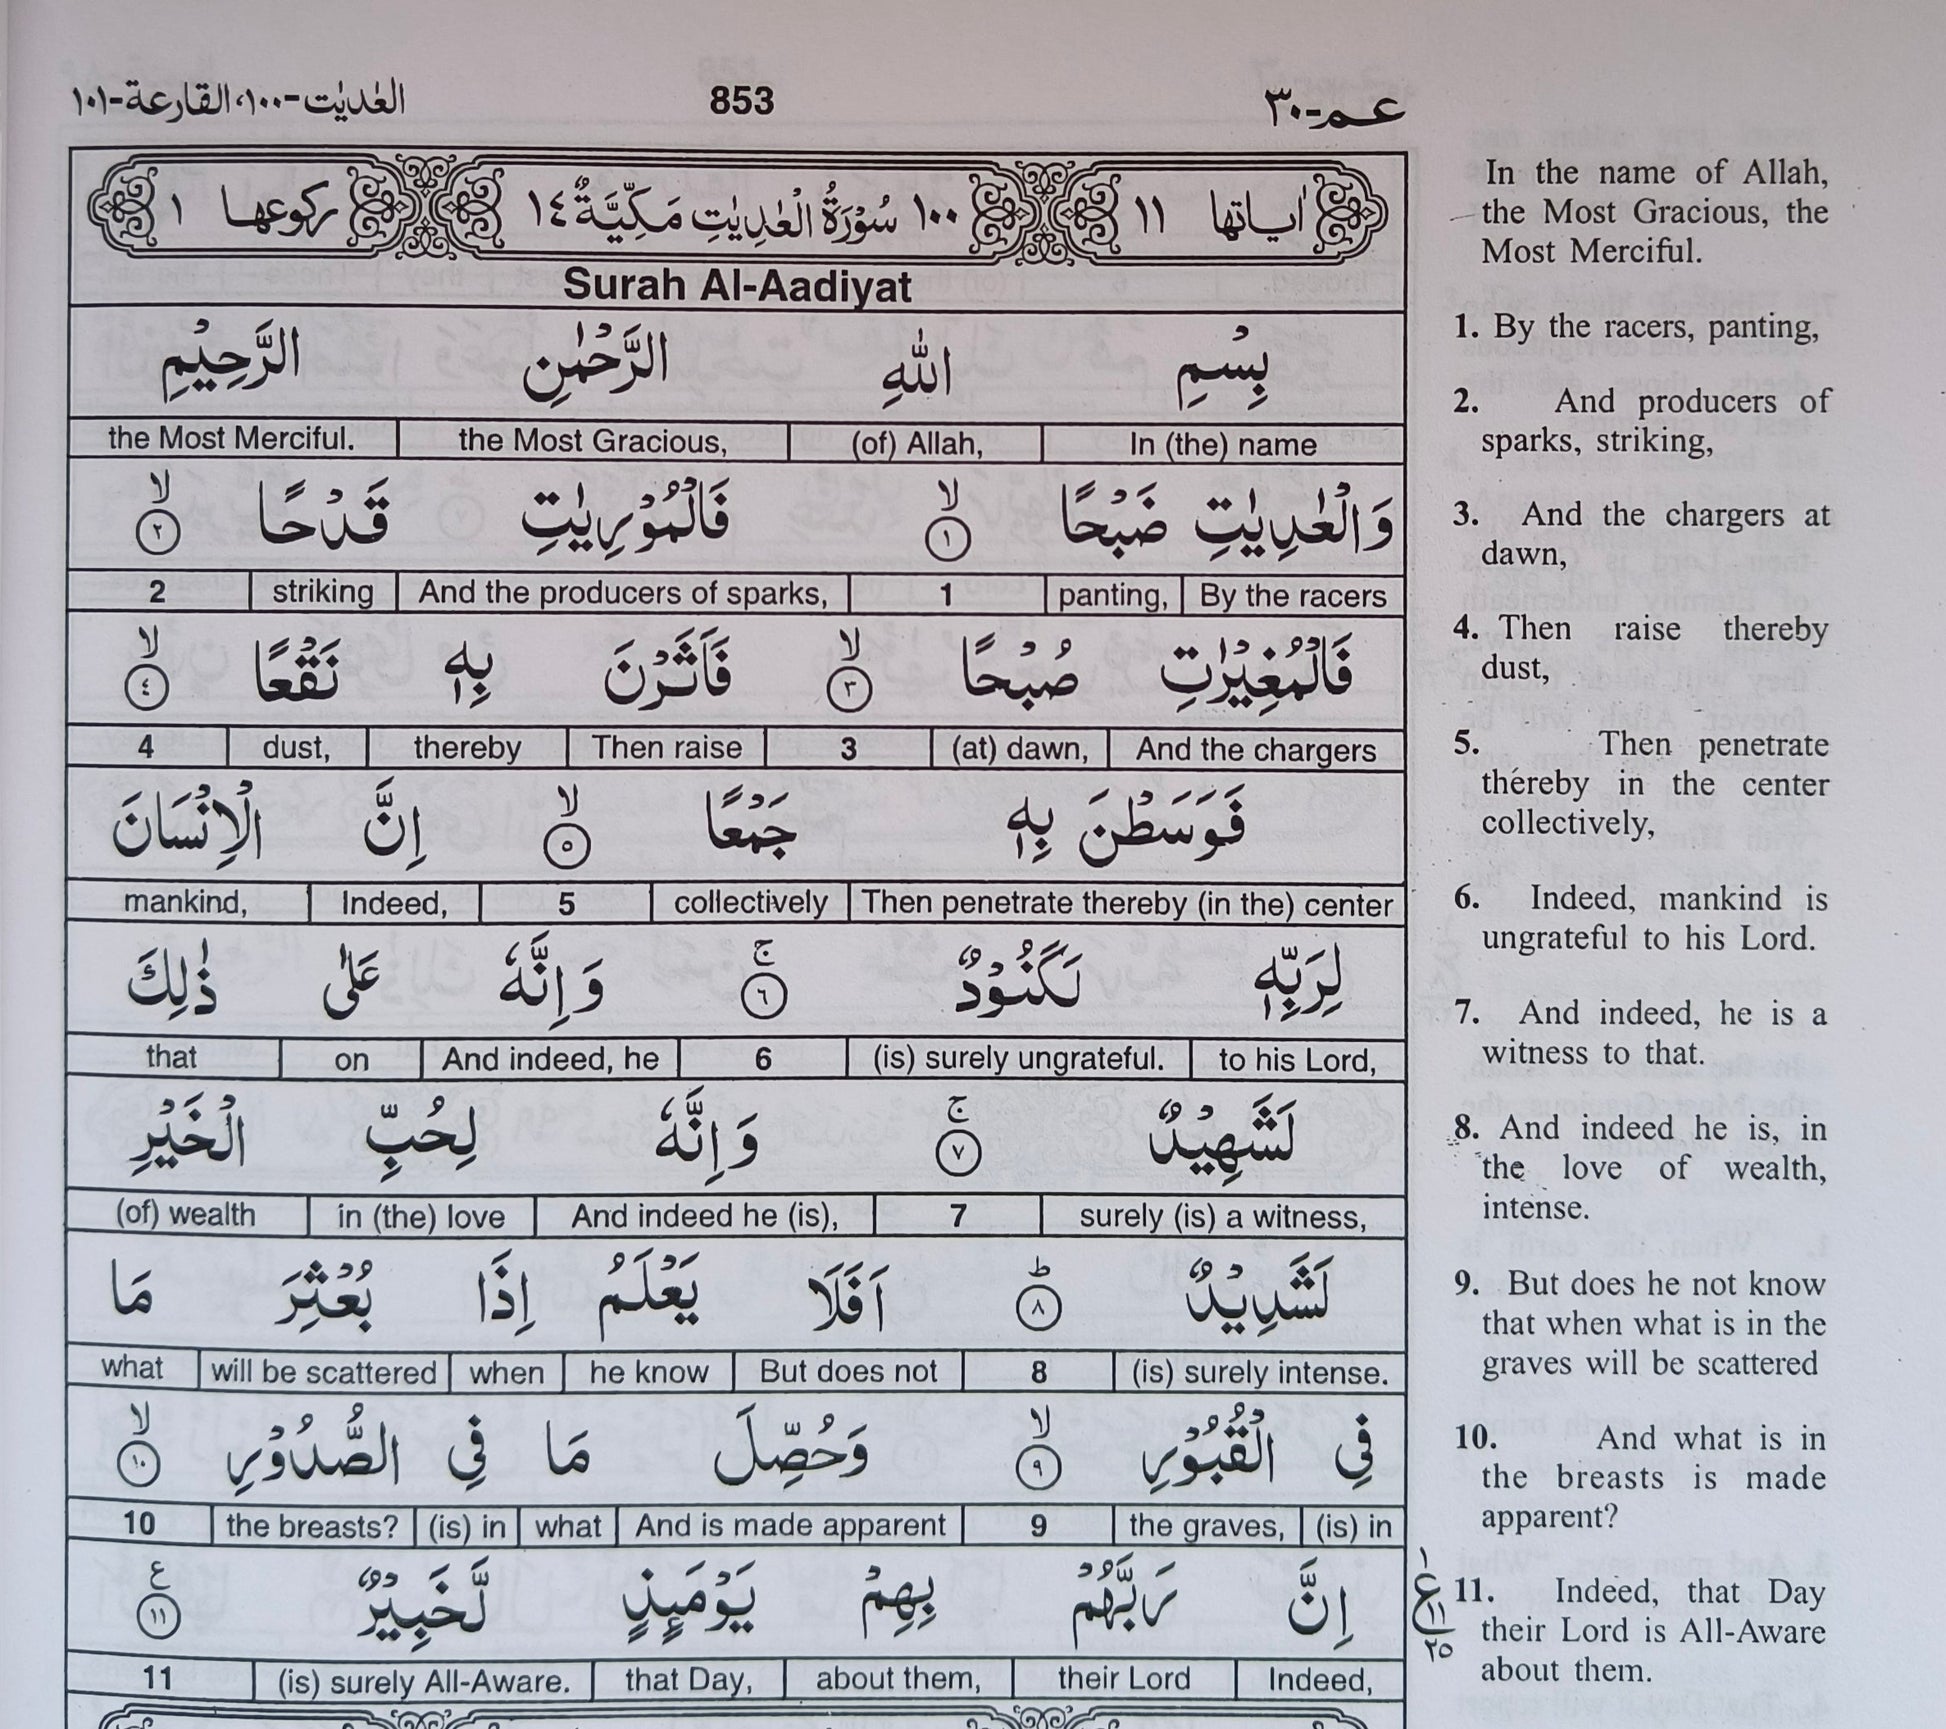 العٰدیٰت-١٠٠، القارعة-١٠١ 853 عـم-٣٠
اٰیاتها ١١ ١٠٠ سُوْرَةُ الْعٰدِیٰتِ مَکِّیَّةٌ ١٤ رکوعها ١
Surah Al-Aadiyat
بِسْمِ اللّٰهِ الرَّحْمٰنِ الرَّحِیْمِ
the Most Merciful. the Most Gracious, (of) Allah, In (the) name
وَالْعٰدِیٰتِ ضَبْحًا ۙ ١ فَالْمُوْرِیٰتِ قَدْحًا ۙ ٢
2 striking And the producers of sparks, 1 panting, By the racers
فَالْمُغِیْرٰتِ صُبْحًا ۙ ٣ فَاَثَرْنَ بِهٖ نَقْعًا ۙ ٤
4 dust, thereby Then raise 3 (at) dawn, And the chargers
فَوَسَطْنَ بِهٖ جَمْعًا ۙ ٥ اِنَّ الْاِنْسَانَ
mankind, Indeed, 5 collectively Then penetrate thereby (in the) center
لِرَبِّهٖ لَکَنُوْدٌ ۚ ٦ وَاِنَّهٗ عَلٰی ذٰلِكَ
that on And indeed, he 6 (is) surely ungrateful. to his Lord,
لَشَهِیْدٌ ۚ ٧ وَاِنَّهٗ لِحُبِّ الْخَیْرِ
(of) wealth in (the) love And indeed he (is), 7 surely (is) a witness,
لَشَدِیْدٌ ؕ ٨ اَفَلَا یَعْلَمُ اِذَا بُعْثِرَ مَا
what will be scattered when he know But does not 8 (is) surely intense.
فِی الْقُبُوْرِ ۙ ٩ وَحُصِّلَ مَا فِی الصُّدُوْرِ ۙ ١٠
10 the breasts? (is) in what And is made apparent 9 the graves, (is) in
اِنَّ رَبَّهُمْ بِهِمْ یَوْمَىِٕذٍ لَّخَبِیْرٌ ع ١١
11 (is) surely All-Aware. that Day, about them, their Lord Indeed,
١
ع
١١
٢٥
In the name of Allah,
the Most Gracious, the
Most Merciful.
1. By the racers, panting,
2. And producers of
sparks, striking,
3. And the chargers at
dawn,
4. Then raise thereby
dust,
5. Then penetrate
thereby in the center
collectively,
6. Indeed, mankind is
ungrateful to his Lord.
7. And indeed, he is a
witness to that.
8. And indeed he is, in
the love of wealth,
intense.
9. But does he not know
that when what is in the
graves will be scattered
10. And what is in
the breasts is made
apparent?
11. Indeed, that Day
their Lord is All-Aware
about them.